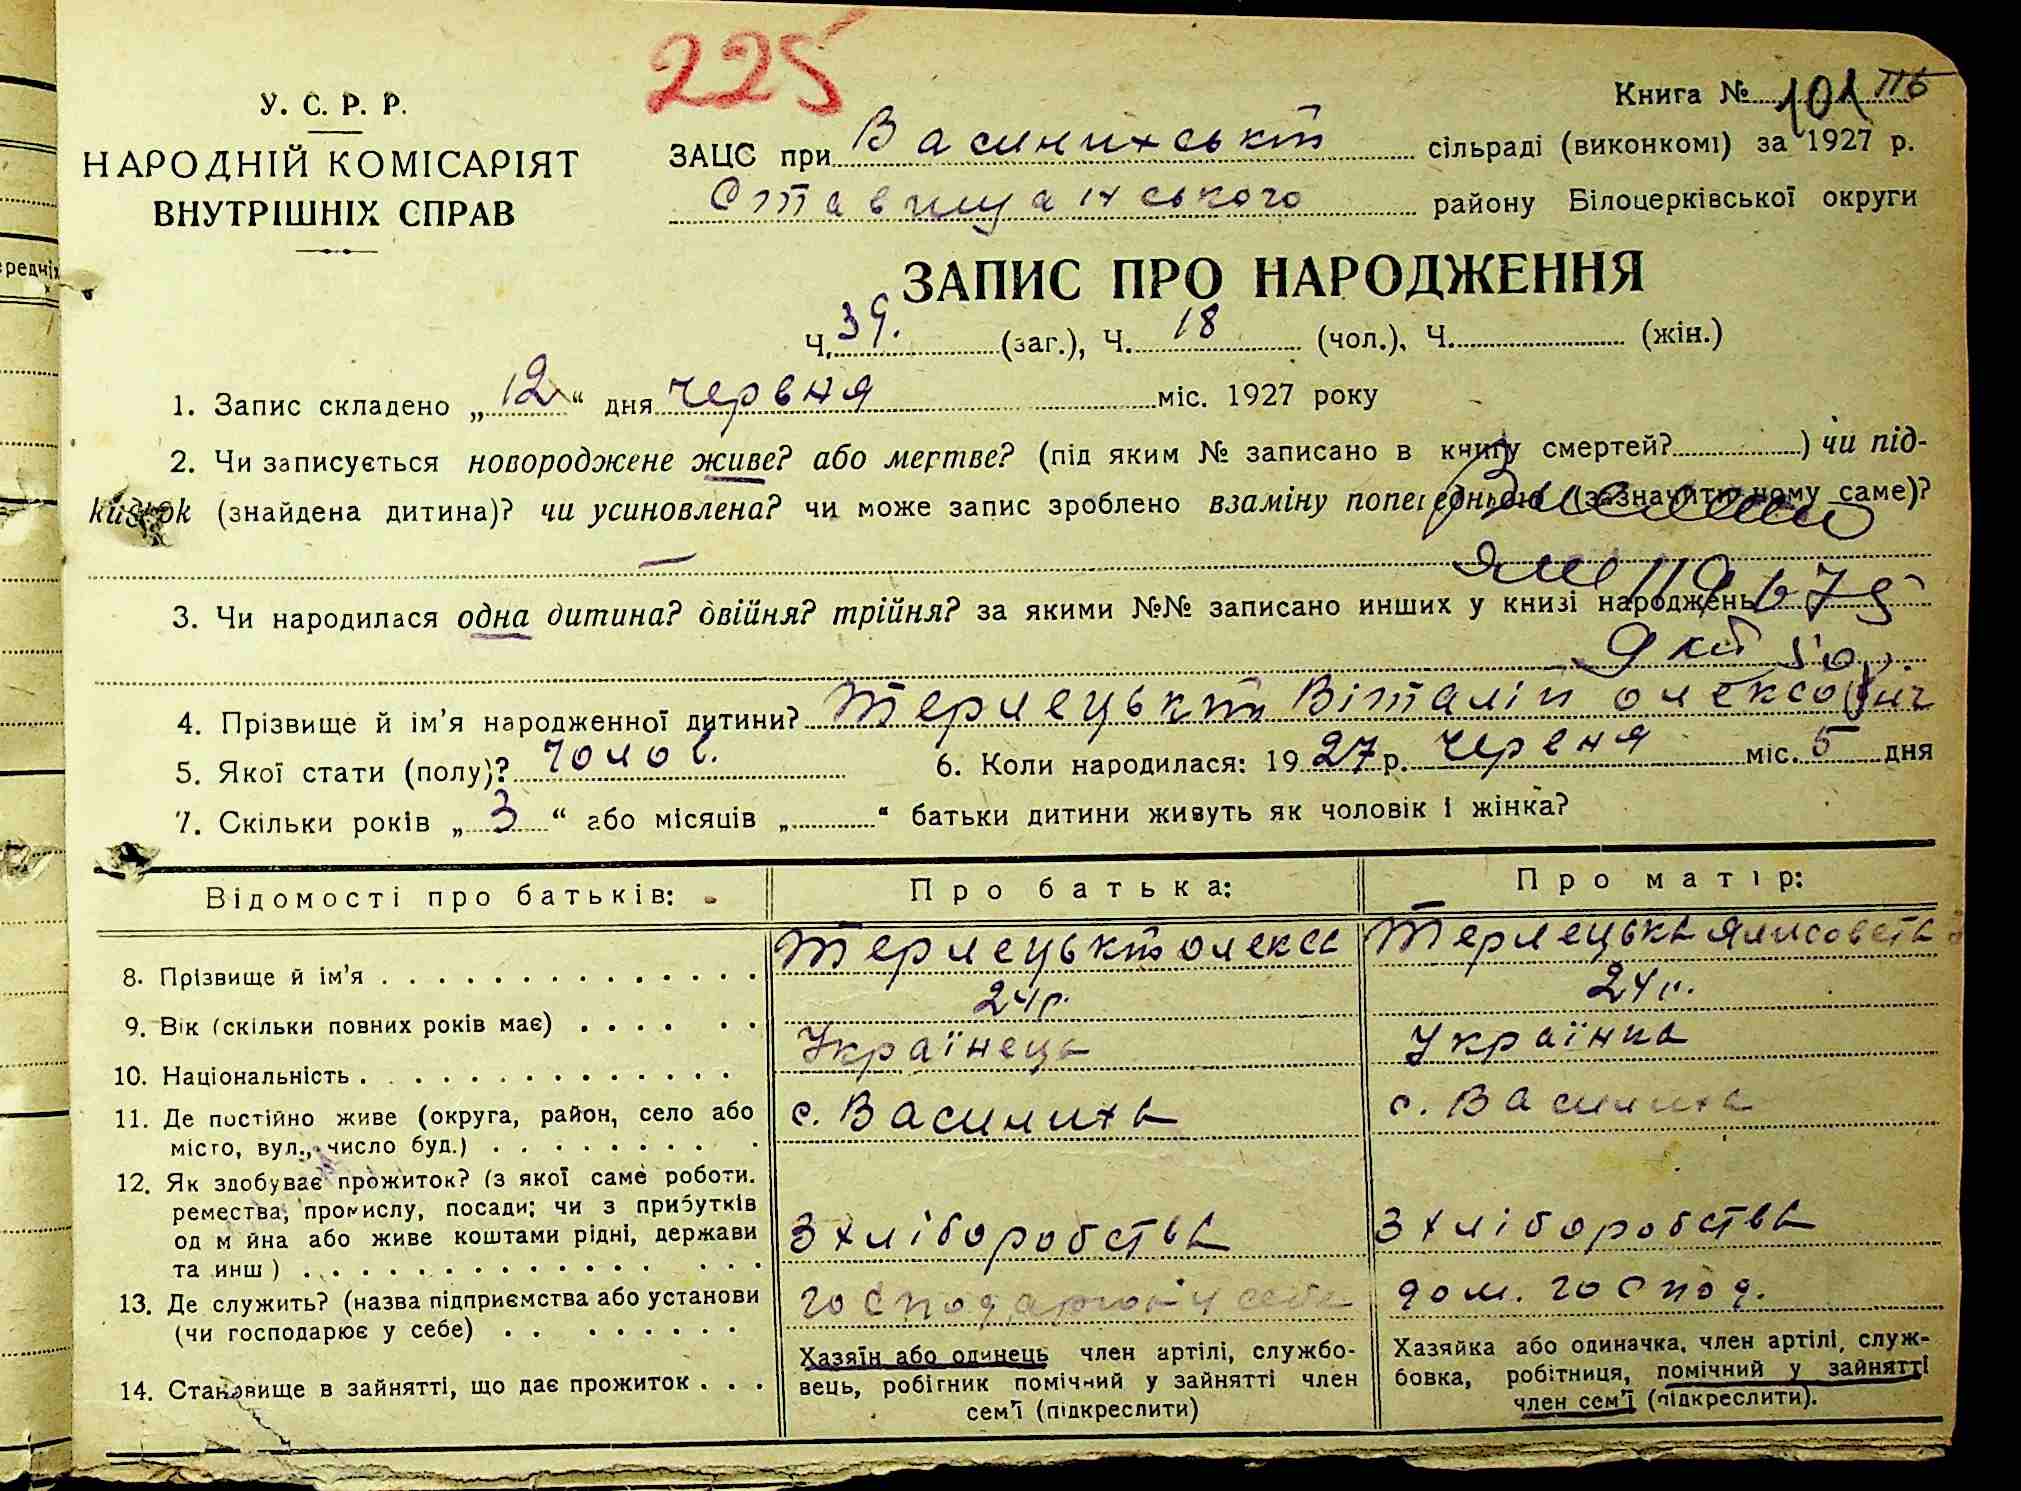 225
Книга № 101
У. С. Р. Р.
НАРОДНІЙ КОМІСАРІЯТ
ВНУТРІШНІХ СПРАВ
ЗАЦС при Василихській сільраді (виконкомі) за 1927 р.
Ставищанського району Білоцерківської округи
ЗАПИС ПРО НАРОДЖЕННЯ
Ч. 39. (заг.), Ч. 18 (чол.), Ч. (жін.)
1. Запис складено „12“ дня червня міс. 1927 року
2. Чи записується новороджене живе? або мертве? (під яким № записано в книгу смертей? ) чи під-
кидьок (знайдена дитина)? чи усиновлена? чи може запис зроблено взаміну попередньою (зазначити чому саме)?
3. Чи народилася одна дитина? двійня? трійня? за якими №№ записано инших у книзі народжень
4. Прізвище й ім'я народженної дитини? Терлецький Віталій Олексович
5. Якої стати (полу)? чолов. 6. Коли народилася: 1927 р. червня міс. 5 дня
7. Скільки років „3“ або місяців „ “ батьки дитини живуть як чоловік і жінка?
Відомості про батьків: Про батька: Про матір:
8. Прізвище й ім'я Терлецький Олекса Терлецька Ялисовета
9. Вік (скільки повних років має) 24 р. 24 р.
10. Національність Українець Українка
11. Де постійно живе (округа, район, село або
місто, вул., число буд.) с. Василиха с. Василиха
12. Як здобуває прожиток? (з якої саме роботи.
ремества, промислу, посади; чи з прибутків
од майна або живе коштами рідні, держави
та инш) З хліборобства З хліборобства
13. Де служить? (назва підприємства або установи
(чи господарює у себе) господарює у себе дом. господ.
14. Становище в зайнятті, що дає прожиток
Хазяїн або одинець член артілі, службо-
вець, робігник помічний у зайнятті член
сем'ї (підкреслити)
Хазяйка або одиначка, член артілі, служ-
бовка, робітниця, помічний у зайнятті
член сем'ї (підкреслити).